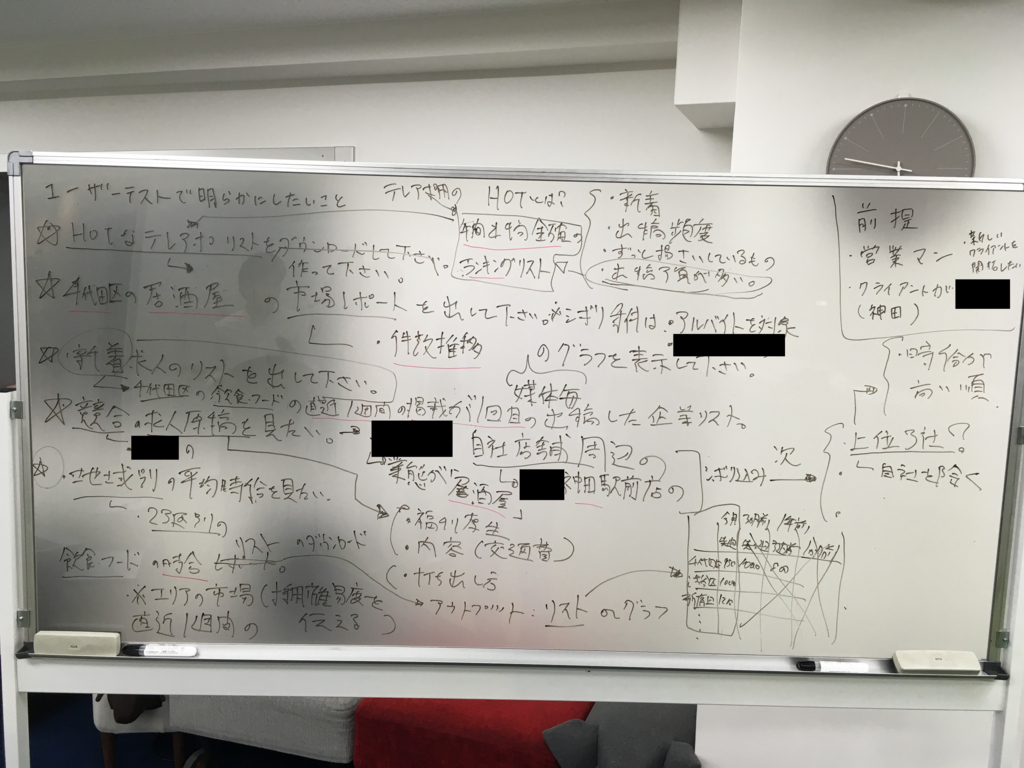 ユーザーテストで明らかにしたいこと
☆ HOTなテレアポリストをダウンロードして下さい。
作って下さい。
テレアポ用の HOTとは?
出稿金額の
ランキングリスト
・新着
・出稿頻度
・ずっと掲さいしているもの
・出稿了気が多い。
☆ 千代田区の居酒屋の市場レポートを出して下さい。※シボリ条件は・アルバイトを対象
・件数推移のグラフを表示して下さい。
媒体毎
☆ ・新着求人のリストを出して下さい。
千代田区の飲食フードの直近1週間の掲載が1回目の出稿した企業リスト。
☆ 競合の求人原稿を見たい。
の
業態が居酒屋
自社店舗周辺の
神田駅前店の
シボリコミ 次
・時給が高い順
・上位3社?
自社を除く
・福利厚生
・内容(交通費)
・打ち出し方
☆ ・地域別の平均時給を見たい。
・23区別の
飲食フードの時給 リストのダウンロード
※エリアの市場(採用難易度を伝える)
直近1週間の
アウトプット:リスト のグラフ
今月 3ヶ月前 1年前
千代田区
新宿区
前提
・営業マン
・新しいクライアントを開拓したい
・クライアントが
(神田)